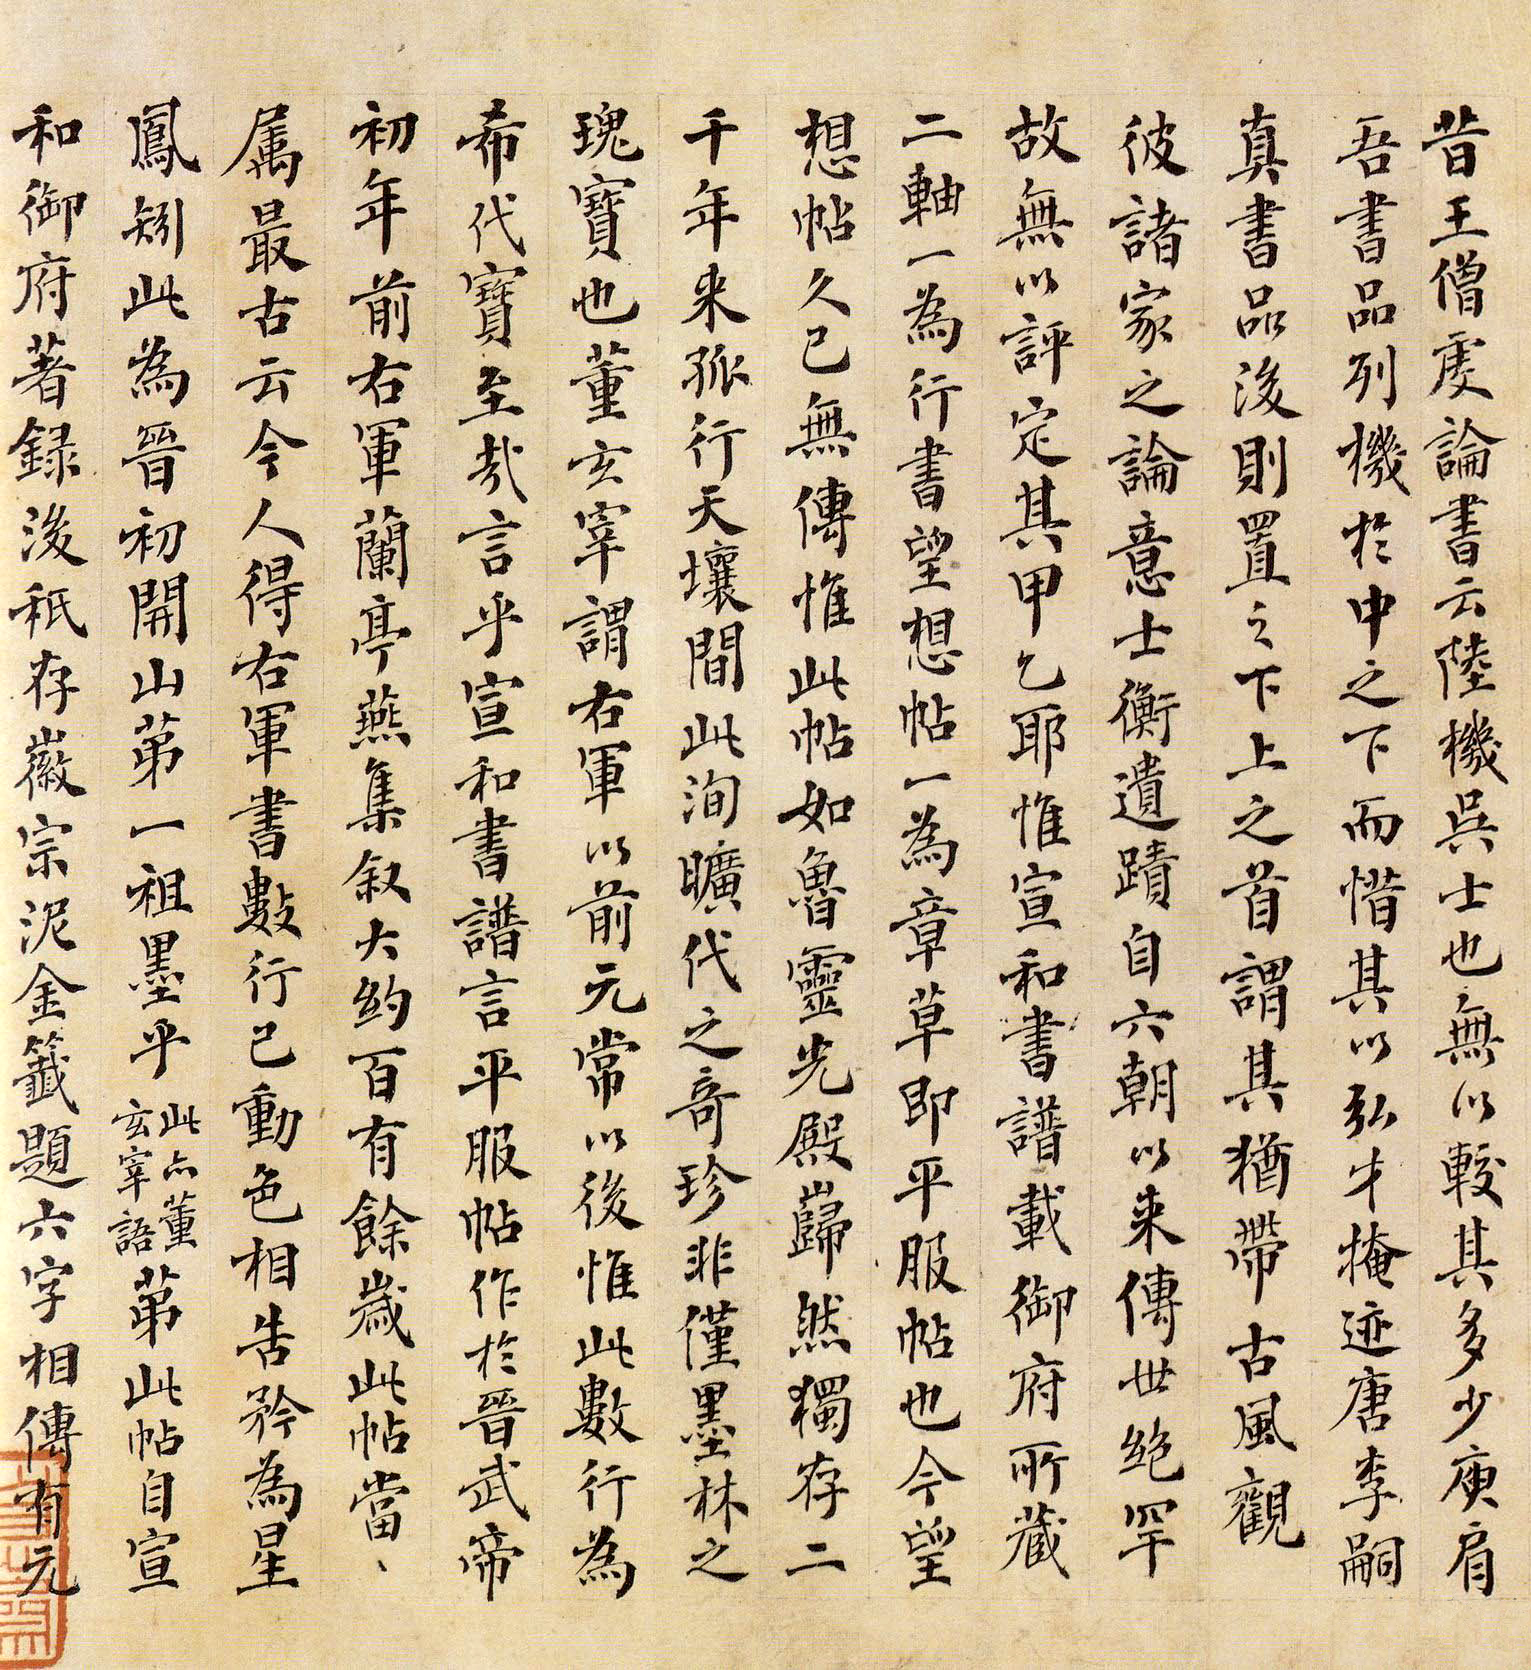 昔王僧虔論書云陸機吳士也無以較其多少庾肩
吾書品列機於中之下而惜其以弘才掩迹唐李嗣
真書品後則置之下上之首謂其猶帶古風觀
彼諸家之論意士衡遺蹟自六朝以来傳世絕罕
故無以評定其甲乙耶惟宣和書譜載御府所藏
二軸一為行書望想帖一為章草即平服帖也今望
想帖久已無傳惟此帖如魯靈光殿巋然獨存二
千年来孤行天壤間此洵曠代之奇珍非僅墨林之
瑰寶也董玄宰謂右軍以前元常以後惟此數行為
希代寶至哉言乎宣和書譜言平服帖作於晉武帝
初年前右軍蘭亭燕集叙大約百有餘歲此帖當、
属最古云今人得右軍書數行已動色相告矜為星
鳳矧此為晉初開山第一祖墨乎此亦董玄宰語第此帖自宣
和御府著録後祇存徽宗泥金籤題六字相傳有元